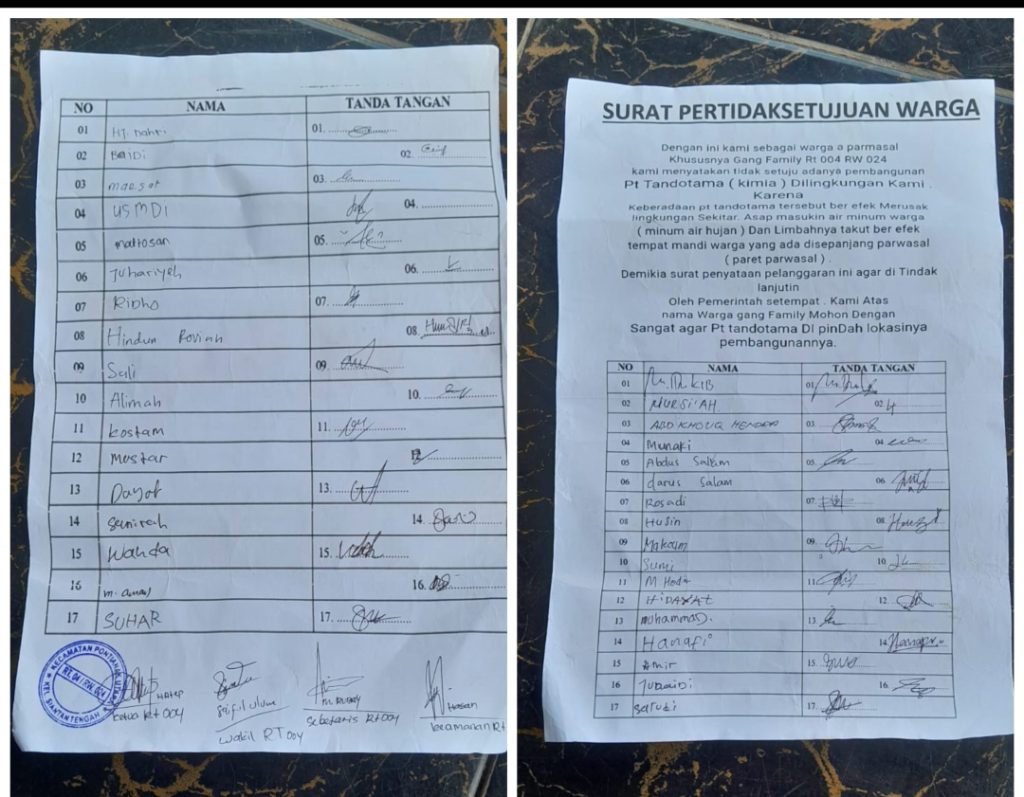 NO NAMA TANDA TANGAN
01 Hj. 01.
02 BAIDI 02.
03 03.
04 USMDI 04.
05 mattosan 05.
06 Juhariyeh 06.
07 Ridho 07.
08 Hindun 08.
09 Suli 09.
10 Alimah 10.
11 kostam 11.
12 Mustar 12
13 Dayat 13.
14 Senirah 14.
15 Wahda 15.
16 16.
17 SUHAR 17.
KECAMATAN PONTIANAK UTARA
RT.04 / RW.024
KEL. SIANTAN TENGAH
HATEP
ketua Rt 004
Saiful ulum
wakil RT 004
M. RUSDY
Sekertaris RT 004
Hasan
keamanan Rt
SURAT PERTIDAKSETUJUAN WARGA
Dengan ini kami sebagai warga a parmasal
Khususnya Gang Family Rt 004 RW 024
kami menyatakan tidak setuju adanya pembangunan
Pt Tandotama ( kimia ) Dilingkungan Kami .
Karena
Keberadaan pt tandotama tersebut ber efek Merusak
lingkungan Sekitar. Asap masukin air minum warga
( minum air hujan ) Dan Limbahnya takut ber efek
tempat mandi warga yang ada disepanjang parwasal
( paret parwasal ) .
Demikia surat penyataan pelanggaran ini agar di Tindak
lanjutin
Oleh Pemerintah setempat . Kami Atas
nama Warga gang Family Mohon Dengan
Sangat agar Pt tandotama DI pinDah lokasinya
pembangunannya.
NO NAMA TANDA TANGAN
01 01
02 NURSI'AH 02
03 ABD KHOLIQ 03
04 Munaki 04
05 Abdus Salam 05.
06 darus Salam 06
07 Rosadi 07.
08 Husin 08
09 09.
10 Sumi 10.
11 M Hoda 11.
12 HIDAYAT 12.
13 muhammad. 13.
14 Hanafi 14
15 Amir 15.
16 Junaidi 16.
17 17.